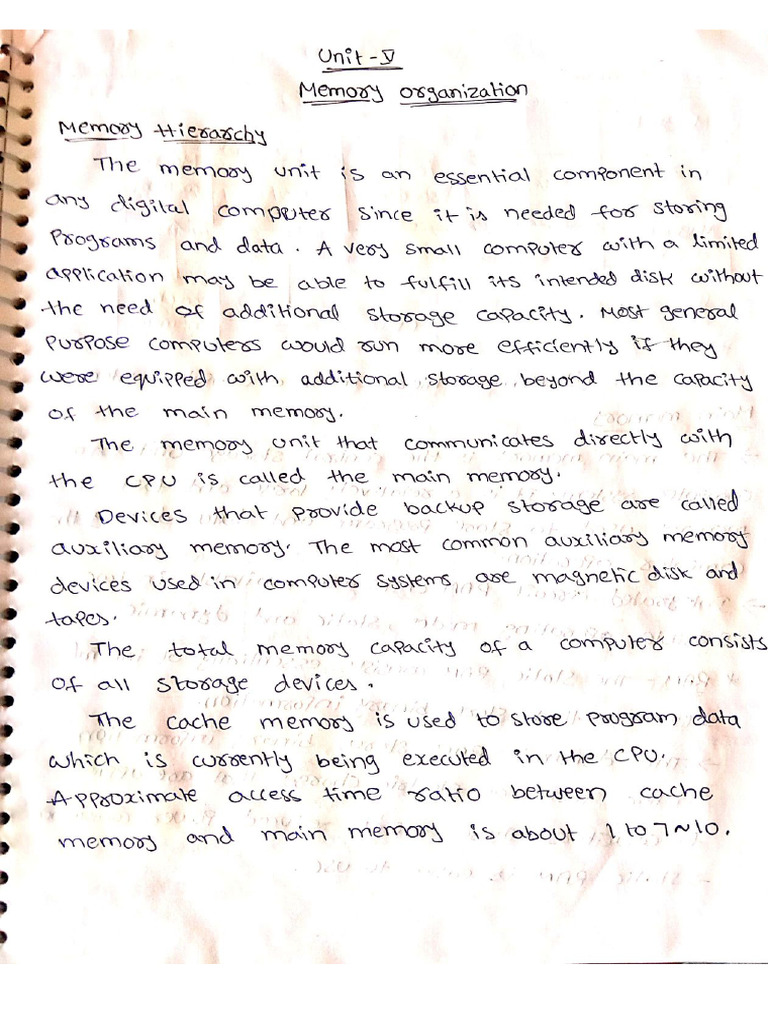 Unit-V
Memory organization
Memory Hierarchy
The memory unit is an essential component in
any digital computer since it is needed for storing
programs and data. A very small computer with a limited
application may be able to fulfill its intended disk without
the need of additional storage capacity. Most general
purpose computers would run more efficiently if they
were equipped with additional storage beyond the capacity
of the main memory.
The memory unit that communicates directly with
the CPU is called the main memory.
Devices that provide backup storage are called
auxiliary memory. The most common auxiliary memory
devices used in computer systems are magnetic disk and
tapes.
The total memory capacity of a computer consists
of all storage devices.
The cache memory is used to store program data
which is currently being executed in the CPU.
Approximate access time ratio between cache
memory and main memory is about 1 to 7~10.